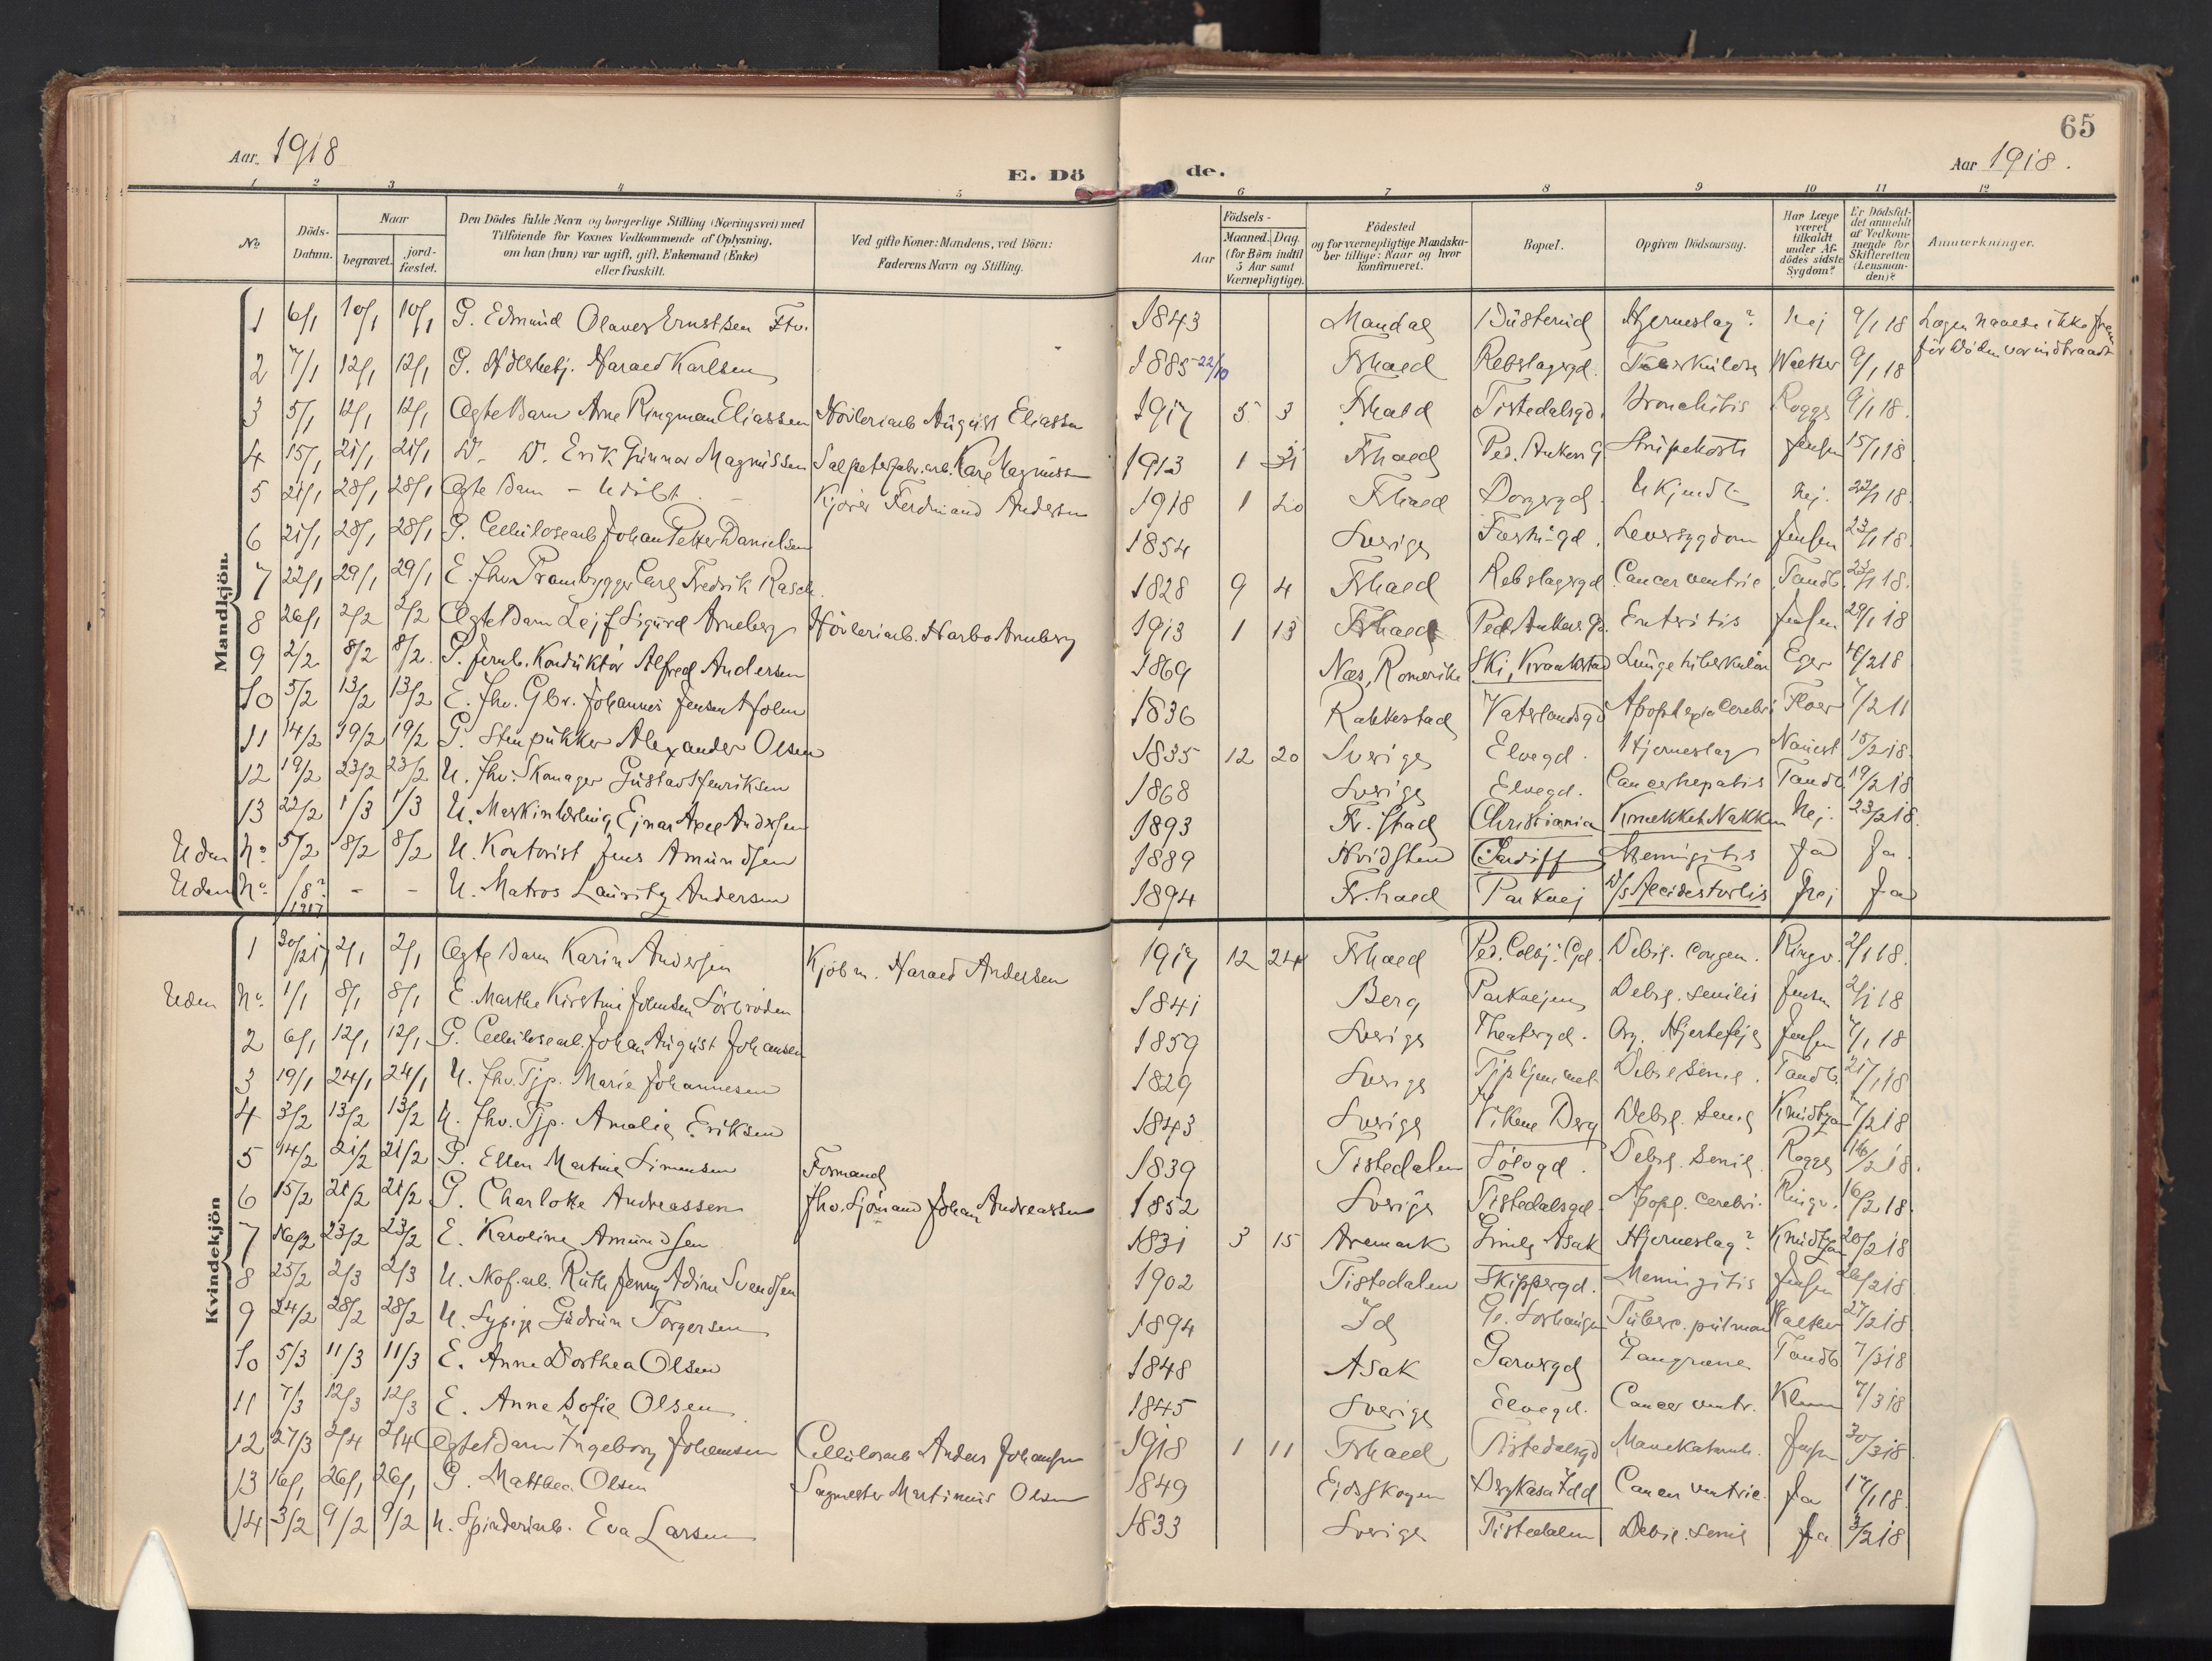 65
Aar. 1918
E. Dö
de.
Aar 1918.
1 2 3 4 5 6 7 8 9 10 11 12
No
Döds-Datum.
Naar
begravet.
jord-fæstet.
Den Dödes fulde Navn og borgerlige Stilling (Næringsvei) med
Tilføiende for Voxnes Vedkommende af Oplysning.
om han (hun) var ugift, gift, Enkemand (Enke)
eller fraskilt.
Ved gifte Koner: Mandens, ved Börn:
Faderens Navn og Stilling.
Födsels-
Aar
Maaned. Dag.
(for Börn indtil
5 Aar samt
Værnepligtige).
Födested
og for værnepligtige Mandska-
ber tillige: Naar og hvor
konfirmeret.
Bopæl.
Opgiven Dödsaarsag.
Har Læge
været
tilkaldt
under Af-
dödes sidste
Sygdom?
Er Dödsfal-
det anmeldt
af Vedkom-
mende for
Skifteretten
(Lensman-
den)?
Anmærkninger.
Mandkjön
1 6/1 10/1 10/1 G. Edmund Olaves Ernstsen 1843 Mandal Busterud Hjerneslag? Nej 9/1 18 Lægen naaede ikke frem
før Døden var indtraadt
2 7/1 12/1 12/1 G. Harald Karlsen 1885 22/10 Frhald Rebslagergd. Walther 9/1 18
3 5/1 12/1 12/1 Ægte Barn Arne Ringman Eliassen Høvleriarb August Eliassen 1917 5 3 Frhald Tistedalsgd. Bronchitis Rogge 9/1 18.
4 15/1 21/1 21/1 D. D. Erik Gunnar Magnussen Karl Magnussen 1913 1 Frhald Ped. Ankers G. Strupehoste Jensen 15/1 18
5 21/1 28/1 28/1 Ægte Barn - Udøbt - Kjører Ferdinand Andersen 1918 1 20 Frhald Borgergd. Ukjendt Nej. 22/1 18.
6 21/1 28/1 28/1 G. Cellulosearb Johan Petter Danielsen 1854 Sverige Leversygdom Jensen 23/1 18.
7 22/1 29/1 29/1 E. Fhv. Prambygger Carl Fredrik Rasch. 1828 9 4 Frhald Rebslagergd. Cancer ventric. Tandb. 23/1 18.
8 26/1 2/2 2/2 Ægte Barn Lejf Sigurd Arneberg Høvleriarb. Narbo Arneberg 1913 1 13 Frhald Ped Ankers Gd. Enteritis Jensen 28/1 18
9 2/2 8/2 8/2. G. Jernb. Konduktør Alfred Andersen 1869 Næs, Romerike Ski, Kraakstad Lungetuberkulose Eger 4/2 18
10 5/2 13/2 13/2 E. Fhv. Gbr. Johannes Jensen Holm 1836 Rakkestad Vaterlandsgd Apoplexia Cerebri Floer 7/2 11
11 14/2 19/2 19/2 G. Stenpukker Alexander Olsen 1835 12 20 Sverige Elvegd. Hjerneslag 15/2 18.
12 19/2 23/2 23/2 U. Fhv. Skomager Gustav Henriksen 1868 Sverige Elvegd. Cancer hepatis Tandb. 19/2 18
13 22/2 1/3 1/3 U. Maskinlærling Ejnar Axel Andersen 1893 Fr. stad Christiania Knækket Nakken Nej. 23/2 18.
Uden No 5/2 8/2 8/2 U. Kontorist Jens Amundsen 1889 Hvidsten Cardiff Meningitis Ja Ja.
Uden No. /8? 1917 - - U. Matros Lauritz Andersen 1894 Fr.hald Parkvej Nej Ja
Kvindekjön
1 30/12 17 2/1 2/1 Ægte Barn Karin Andersen Kjøbm. Harald Andersen 1917 12 24 Frhald Ped. Colbj. Gd. Debil. congen. Ringv. 2/1 18.
Uden No. 1/1 8/1 8/1 E. Marthe Kirstine Johnsen Sørbrøden 1841 Berg Parkvejen Debil. senilis Jensen 2/1 18
2 6/1 12/1 12/1 G. Cellulosearb. Johan August Johansen 1859 Sverige Theatergd. Org. Hjertefejl Jensen 7/1 18
3 19/1 24/1 24/1 U. Fhv. Tjp. Marie Johannesen 1829 Sverige Debil. Senil. Tandb. 21/1 18
4 3/2 13/2 13/2 U. Fhv. Tjp. Amalie Eriksen 1843 Sverige Vikene Berg Debil. Senil Knudtzon 7/2 18
5 14/2 21/2 21/2 G. Ellen Martine Simensen Formand 1839 Tistedalen Debil. Senil. Rogge 16/2 18.
6 15/2 21/2 21/2 G. Charlotte Andreassen Fhv. Sjømand Johan Andreassen 1852 Sverige Tistedalsgd. Apopl. cerebri. Ringv. 16/2 18.
7 16/2 23/2 23/2 E. Karoline Amundsen 1831 3 15 Aremark Gimle Asak Hjerneslag? Knudtzon 20/2 18
8 25/2 2/3 2/3 U. Ruth Jenny Adine Svendsen 1902 Tistedalen Skippergd. Meningitis Jensen 26/2 18
9 24/2 28/2 28/2 U. Sypige Gudrun Torgersen 1894 Id Tuberc. pulmon Walther 27/2 18.
10 5/3 11/3 11/3 E. Anne Dorthea Olsen 1848 Asak Garvergd Gangræne Tandb 7/3 18
11 7/3 12/3 12/3 E. Anne Sofie Olsen 1845 Sverige Elvegd. Cancer ventr. 7/3 18
12 27/3 2/4 2/4 Ægte Barn Ingeborg Johansen Cellulosearb Anders Johansen 1918 1 11 Frhald Tistedalsgd Mavekatarrh. Jensen 30/3 18.
13 16/1 26/1 26/1 G. Matthea Olsen Sagmester Martinius Olsen 1849 Eidsskogen Cancer ventric. Ja 17/1 18.
14 3/2 9/2 9/2 U. Spinderiarb. Eva Larsen 1833 Sverige Tistedalen Debil. senil Ja 3/2 18